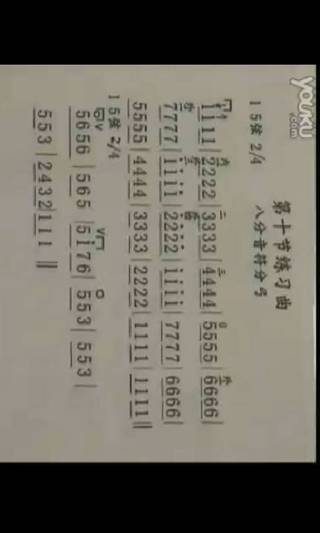 YOUKU
.com
第十节练习曲
八分音符分弓
1 5弦 2/4
1111|2222|3333|4444|5555|6666|
7777|1̇1̇1̇1̇|2̇2̇2̇2̇|1̇1̇1̇1̇|7777|6666|
5555|4444|3333|2222|1111|1111‖
1 5弦 2/4
5656|565|51̇76|553|553|
553|2432|111‖